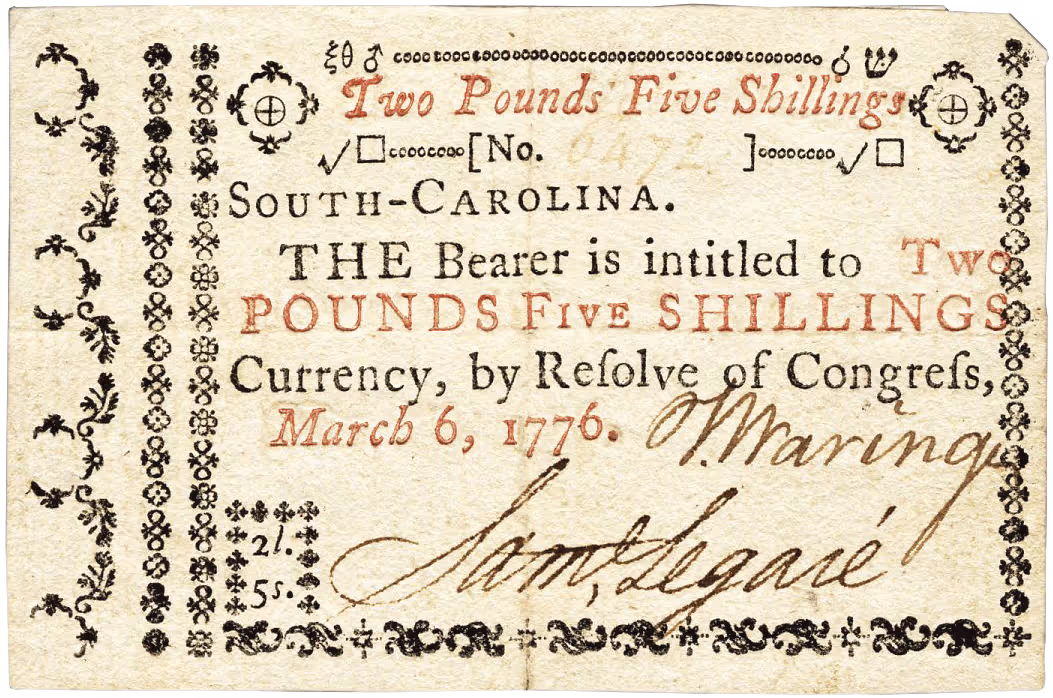 ξθ ♂ ♂ ש
Two Pounds Five Shillings
√ □ [No. 6472 ] √ □
SOUTH-CAROLINA.
THE Bearer is intitled to Two
POUNDS FIVE SHILLINGS
Currency, by Reſolve of Congreſs,
March 6, 1776. T. Waring
Saml. Legaré
2l.
5s.